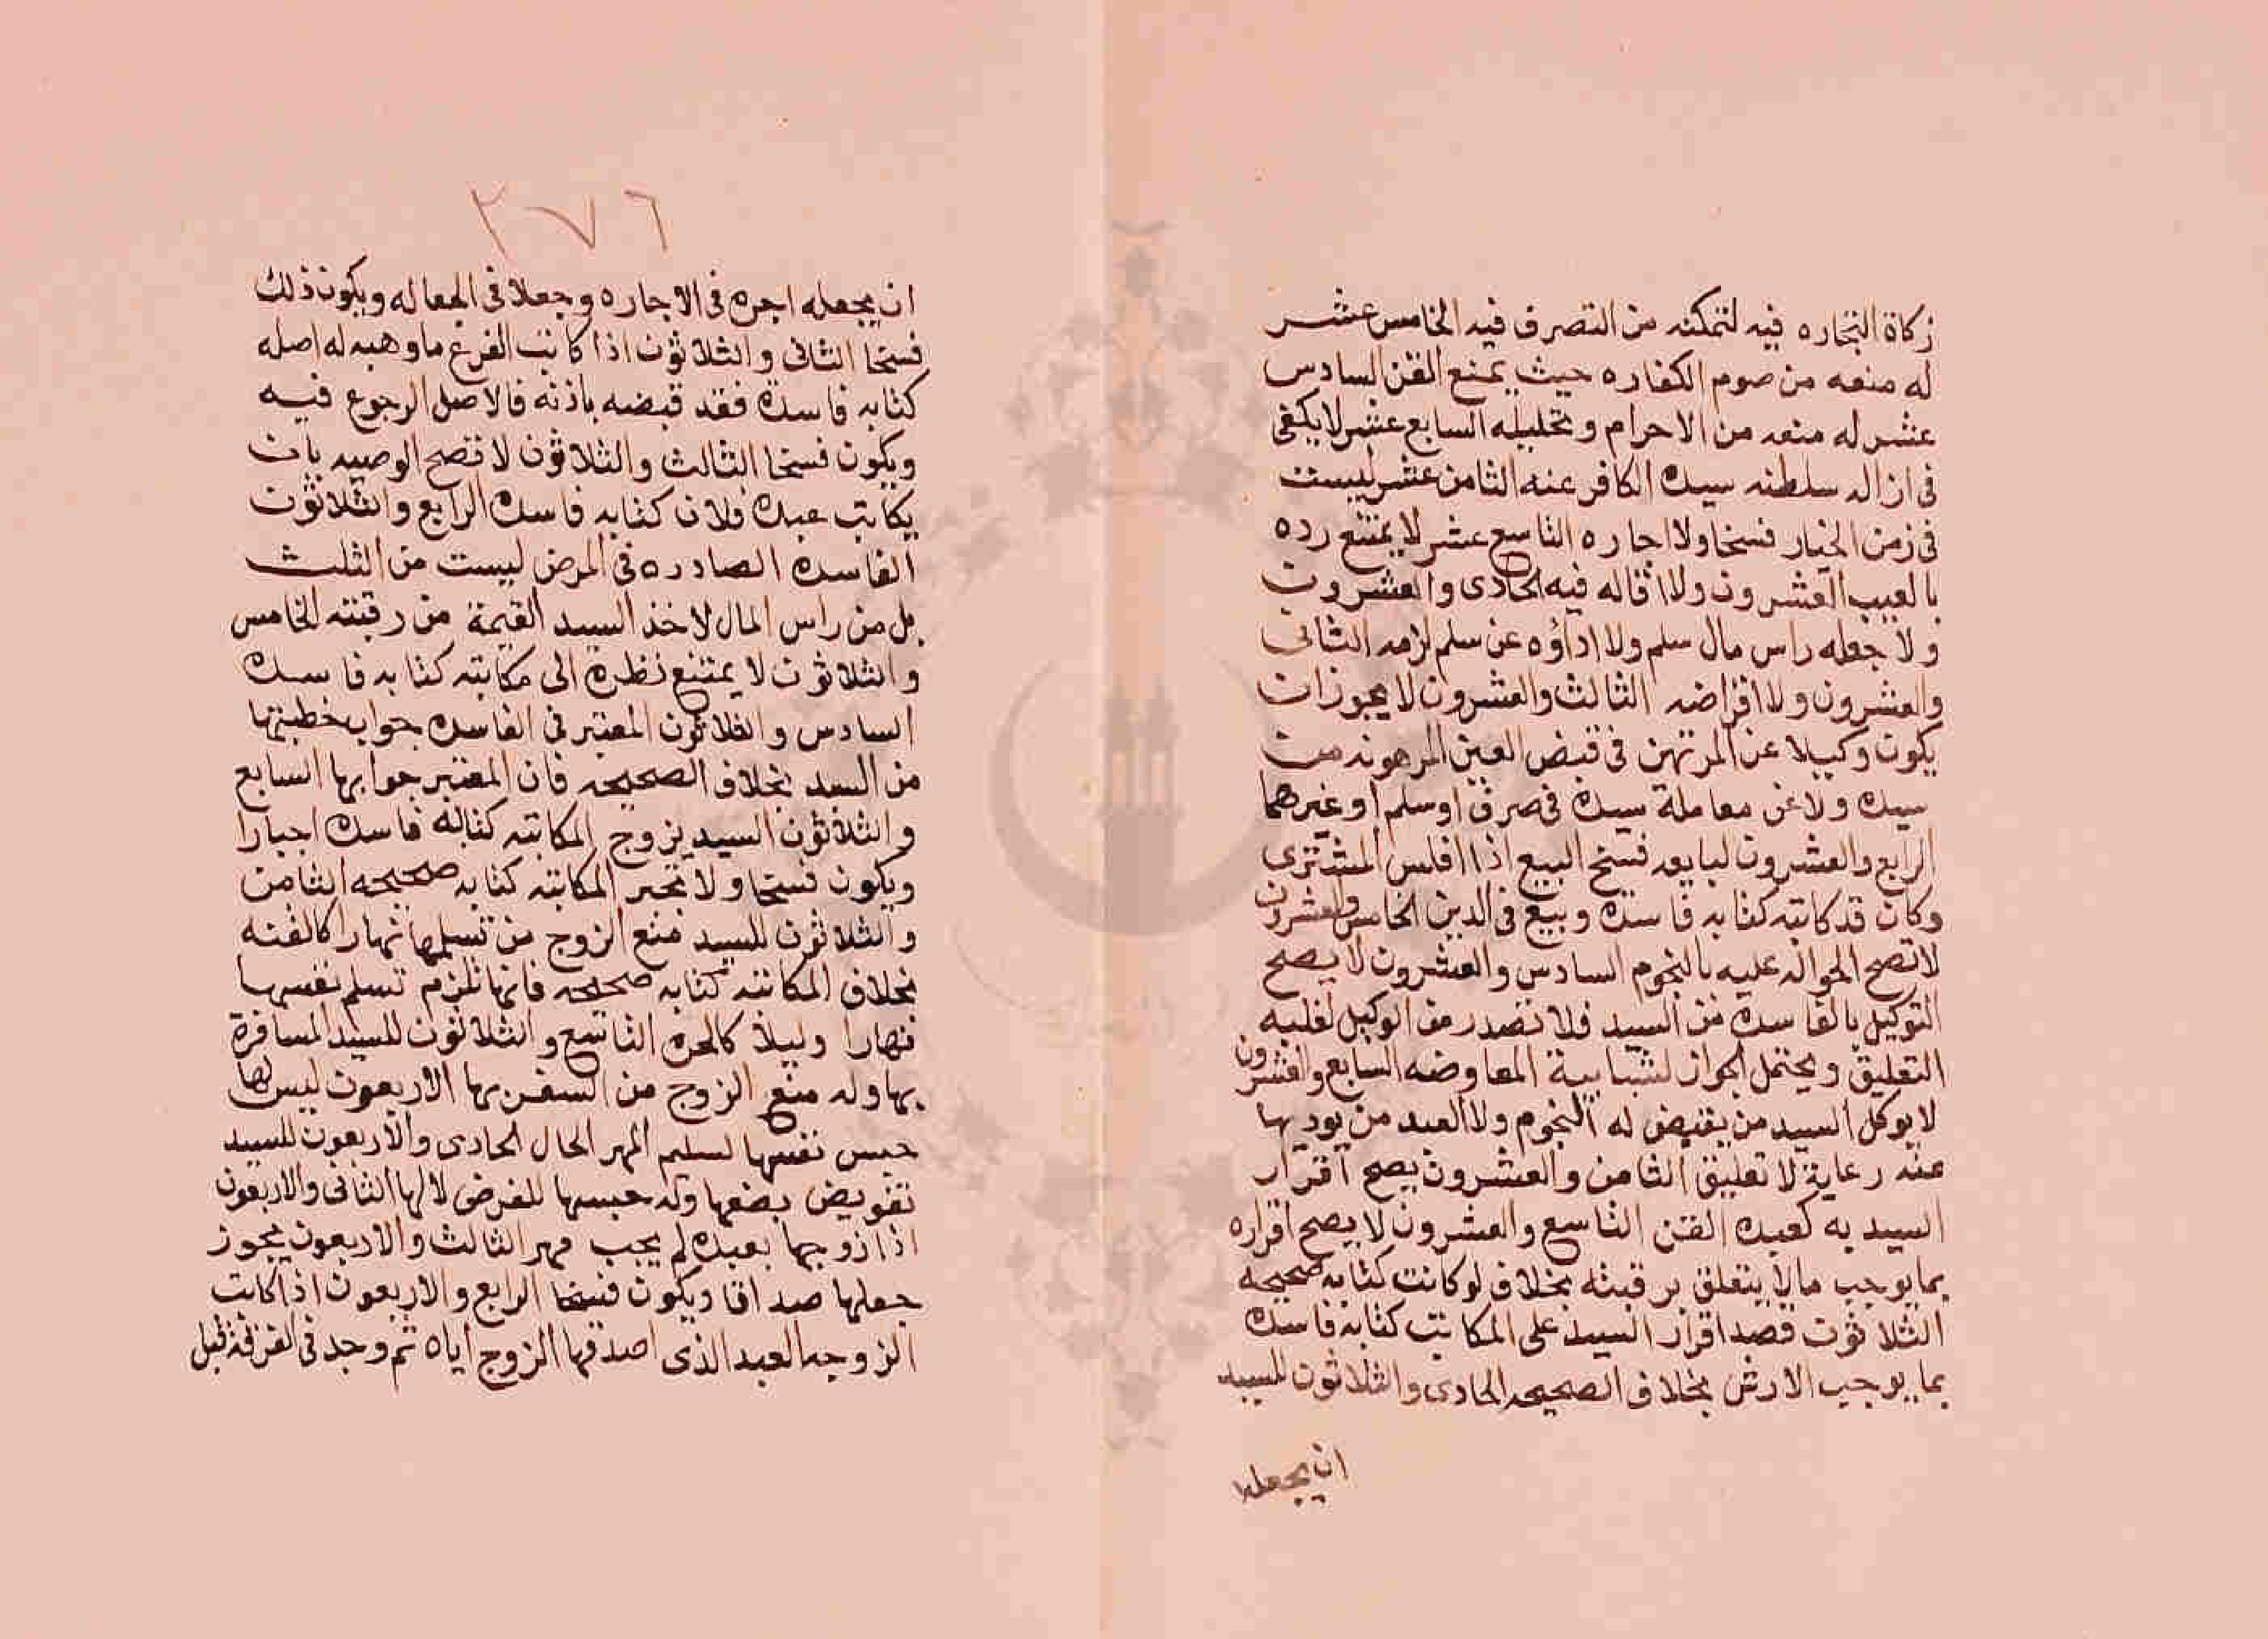 زكاة التجاره فيه لتمكنه من التصرف فيه الخامس عشر
له منعه من صوم الكفاره حيث يمنع القن السادس
عشر له منعه من الاحرام وتحليله السابع عشر لا يكفى
فى ازاله سلطنه سيده الكافر عنه الثامن عشر ليست
فى زمن الخيار فسخا ولا اجاره التاسع عشر لا يمتنع رده
بالعيب العشرون ولا اقاله فيه الحادى والعشرون
ولا جعله راس مال سلم ولا اداؤه عن سلم لزمه الثانى
والعشرون ولا اقراضه الثالث والعشرون لا يجوز ان
يكون وكيلا عن المرتهن فى قبض العين المرهونه من
سيده ولا عن معاملة سيده فى صرف او سلم او غيرهما
الرابع والعشرون لبايعه فسخ البيع اذا افلس المشترى
وكان قد كاتبه كتابه فاسده وبيع فى الدين الخامس والعشرون
لا تصح الحواله عليه بالنجوم السادس والعشرون لا يصح
التوكيل بالفاسده من السيد فلا تصدر من الوكيل لغلبه
التعليق ويحتمل الجواز لشبابية المعاوضه السابع والعشرون
لا يوكل السيد من يقبض له النجوم ولا العبد من يوديها
عنه رعاية لا تعليق الثامن والعشرون يصح اقرار
السيد به كعبده القن التاسع والعشرون لا يصح اقراره
بما يوجب مالا يتعلق برقبته بخلاف لو كانت كتابه صحيحه
الثلاثون قصد اقرار السيد على المكاتب كتابه فاسده
بما يوجب الارش بخلاف الصحيحه الحادى والثلاثون للسيد
ان يجعله
٢٧٦
ان يجعله اجره فى الاجاره وجعلا فى الجعاله ويكون ذلك
فسخا الثانى والثلاثون اذا كاتب الفرع ما وهبه له اصله
كتابه فاسده فقد قبضه باذنه فالاصل الرجوع فيه
ويكون فسخا الثالث والثلاثون لا تصح الوصيه بان
يكاتب عبده فلان كتابه فاسده الرابع والثلاثون
الفاسده الصادره فى المرض ليست من الثلث
بل من راس المال لاخذ السيد القيمة من رقبته الخامس
والثلاثون لا يمتنع نظره الى مكاتبته كتابه فاسده
السادس والثلاثون المعتبر فى الفاسده جواب خطبتها
من السيد بخلاف الصحيحه فان المعتبر جوابها السابع
والثلاثون السيد يزوج المكاتبه كتابه فاسده اجبارا
ويكون فسخا ولا تجبر المكاتبه كتابه صحيحه الثامن
والثلاثون للسيد منع الزوج من تسلمها نهارا كالقنه
بخلاف المكاتبه كتابه صحيحه فانها تلزم تسلم نفسها
نهارا وليلا كالحره التاسع والثلاثون للسيد المسافرة
بها وله منع الزوج من السفر بها الاربعون ليس لها
حبس نفسها لتسليم المهر الحال الحادى والاربعون للسيد
تفويض بضعها وله حبسها للفرض لا لها الثانى والاربعون
اذا زوجها بعبده لم يجب مهر الثالث والاربعون يجوز
جعلها صداقا ويكون فسخا الرابع والاربعون اذا كاتب
الزوجه العبد الذى اصدقها الزوج اياه ثم وجد فى الفرقة قبل